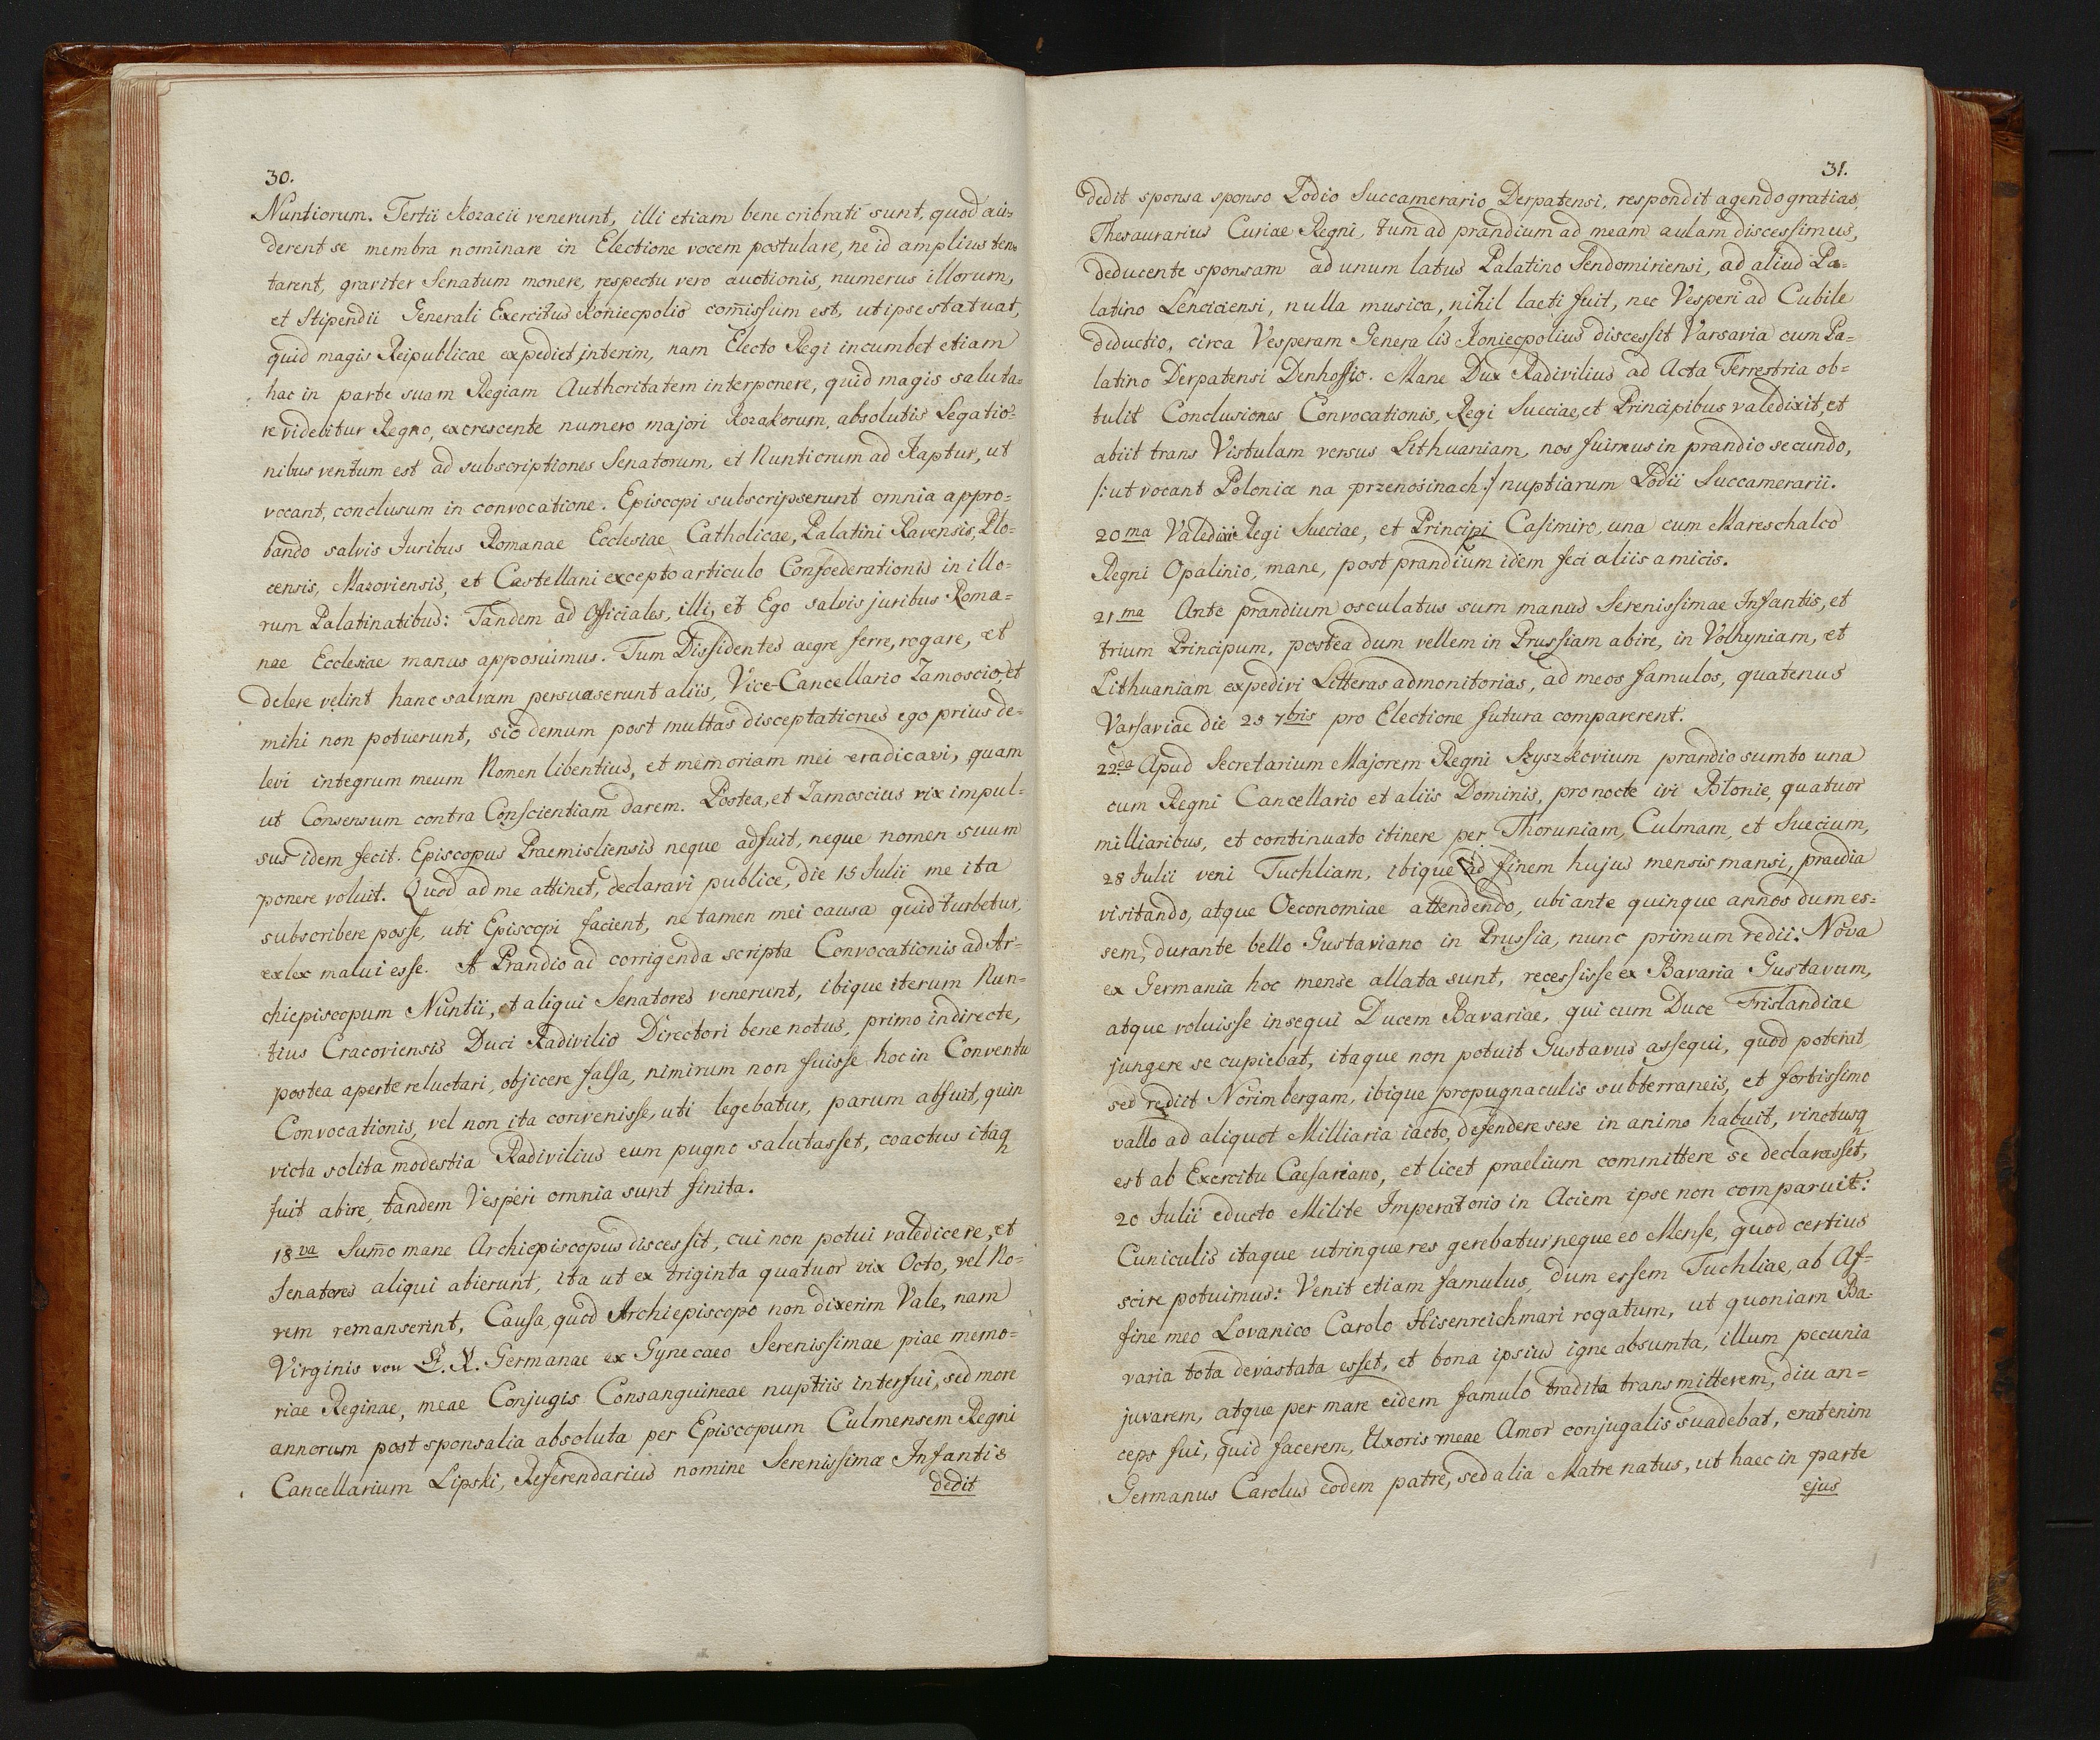 30.
Nuntiorum. Tertii Kozacii venerunt, illi etiam bene cribrati sunt, quod au=
derent se membra nominare in Electione vocem postulare, ne id amplius ten=
tarent, graviter Senatum monere, respectu vero auctionis, numerus illorum,
et Stipendii Generali Exercitus Koniecpolio com̄issum est, ut ipse statuat,
quid magis Reipublicae expediet interim, nam Electo Regi incumbet etiam
hac in parte suam Regiam Authoritatem interponere, quid magis saluta=
re videbitur Regno, excrescente numero majori Kozakorum, absolutis Legatio=
nibus ventum est ad subscriptiones Senatorum, et Nuntiorum ad Kaptur, ut
vocant, conclusum in convocatione. Episcopi subscripserunt omnia appro=
bando salvis Juribus Romanae Ecclesiae Catholicae, Palatini Ravensis, Plo=
censis, Mazoviensis, et Castellani excepto articulo Confoederationis in illo=
rum Palatinatibus: Tandem ad Officiales, illi, et Ego salvis juribus Roma=
nae Ecclesiae manus apposuimus. Tum Dissidentes aegre ferre, rogare, et
delere velint hanc salvam persuaserunt aliis, Vice-Cancellario Zamoscio, et
mihi non potuerunt, sic demum post multas disceptationes ego prius de=
levi integrum meum Nomen libentius, et memoriam mei eradicavi, quam
ut Consensum contra Conscientiam darem. Postea, et Zamoscius vix impul=
sus idem fecit. Episcopus Praemisliensis neque adfuit, neque nomen suum
ponere voluit. Quod ad me attinet, declaravi publice, die 15 Julii me ita
subscribere posse, uti Episcopi facient, ne tamen mei causa quid turbetur,
exlex malui esse. A Prandio ad corrigenda scripta Convocationis ad Ar=
chiepiscopum Nuntii, et aliqui Senatores venerunt, ibique iterum Nun=
tius Cracoviensis Duci Radivilio Directori bene notus, primo indirecte,
postea aperte reluctari, objicere falsa, nimirum non fuisse hoc in Conventu
Convocationis, vel non ita convenisse, uti legebatur, parum abfuit, quin
victa solita modestia Radivilius eum pugno salutasset, coactus itaq
fuit abire, tandem Vesperi omnia sunt finita.
18va Sum̄o mane Archiepiscopus discessit, cui non potui valedicere, et
Senatores aliqui abierunt, ita ut ex triginta quatuor vix Octo, vel No=
vem remanserint, Causa, quod Archiepiscopo non dixerim Vale, nam
Virginis von Germanae ex Gynecaeo Serenissimae piae memo=
riae Reginae, meae Conjugis Consanguineae nuptiis interfui, sed more
annorum post sponsalia absoluta per Episcopum Culmensem Regni
Cancellarium Lipski, Referendarius nomine Serenissimae Infantis
dedit
31.
dedit sponsa sponso Podio Succamerario Derpatensi, respondit agendo gratias
Thesaurarius Curiae Regni, tum ad prandium ad meam aulam discessimus,
deducente sponsam ad unum latus Palatino Sendomiriensi, ad aliud Pa=
latino Lenciciensi, nulla musica, nihil laeti fuit, nec Vesperi ad Cubile
deductio, circa Vesperam Generalis Koniecpolius discessit Varsavia cum Pa=
latino Derpatensi Denhoffio. Mane Dux Radivilius ad Acta Terrestria ob=
tulit Conclusiones Convocationis, Regi Sueciae, et Principibus valedixit, et
abiit trans Vistulam versus Lithuaniam, nos fuimus in prandio secundo,
/:ut vocant Polonice na przenosinach:/ nuptiarum Podii Succamerarii.
20ma Valedixi Regi Sueciae, et Principi Casimiro, una cum Mareschalco
Regni Opalinio, mane, post prandium idem feci aliis amicis.
21ma Ante prandium osculatus sum manus Serenissimae Infantis, et
trium Principum, postea dum vellem in Prussiam abire, in Volhyniam, et
Lithuaniam expedivi Litteras admonitorias, ad meos famulos, quatenus
Varsaviae die 25 7bris pro Electione futura comparerent.
22da Apud Secretarium Majorem Regni Szyszkovium prandio sumto una
cum Regni Cancellario et aliis Dominis, pro nocte ivi Blonie, quatuor
milliaribus, et continuato itinere per Thoruniam, Culmam, et Suecium,
28 Julii veni Tuchliam, ibique ad finem hujus mensis mansi, praedia
visitando, atque Oeconomiae attendendo, ubi ante quinque annos dum es=
sem, durante bello Gustaviano in Prussia, nunc primum redii. Nova
ex Germania hoc mense allata sunt, recessisse ex Bavaria Gustavum,
atque voluisse insequi Ducem Bavariae, qui cum Duce Frislandiae
jungere se cupiebat, itaque non potuit Gustavus assequi, quod poterat
sed rediit Norimbergam, ibique propugnaculis subterraneis, et fortissimo
vallo ad aliquot Milliaria iacto, defendere sese in animo habuit, vinctusq
est ab Exercitu Caesariano, et licet praelium committere se declarasset,
20 Julii educto Milite Imperatorio in Aciem ipse non comparuit:
Cuniculis itaque utrinque res gerebatur neque eo Mense, quod certius
scire potuimus: Venit etiam famulus, dum essem Tuchliae, ab Af=
fine meo Lovanico Carolo Hisenreichmari rogatum, ut quoniam Ba=
varia tota devastata esset, et bona ipsius igne absumta, illum pecunia
juvarem, atque per mare eidem famulo tradita transmitterem, diu an=
ceps fui, quid facerem, Uxoris meae Amor conjugalis suadebat, erat enim
Germanus Carolus eodem patre, sed alia Matre natus, ut haec in parte
ejus